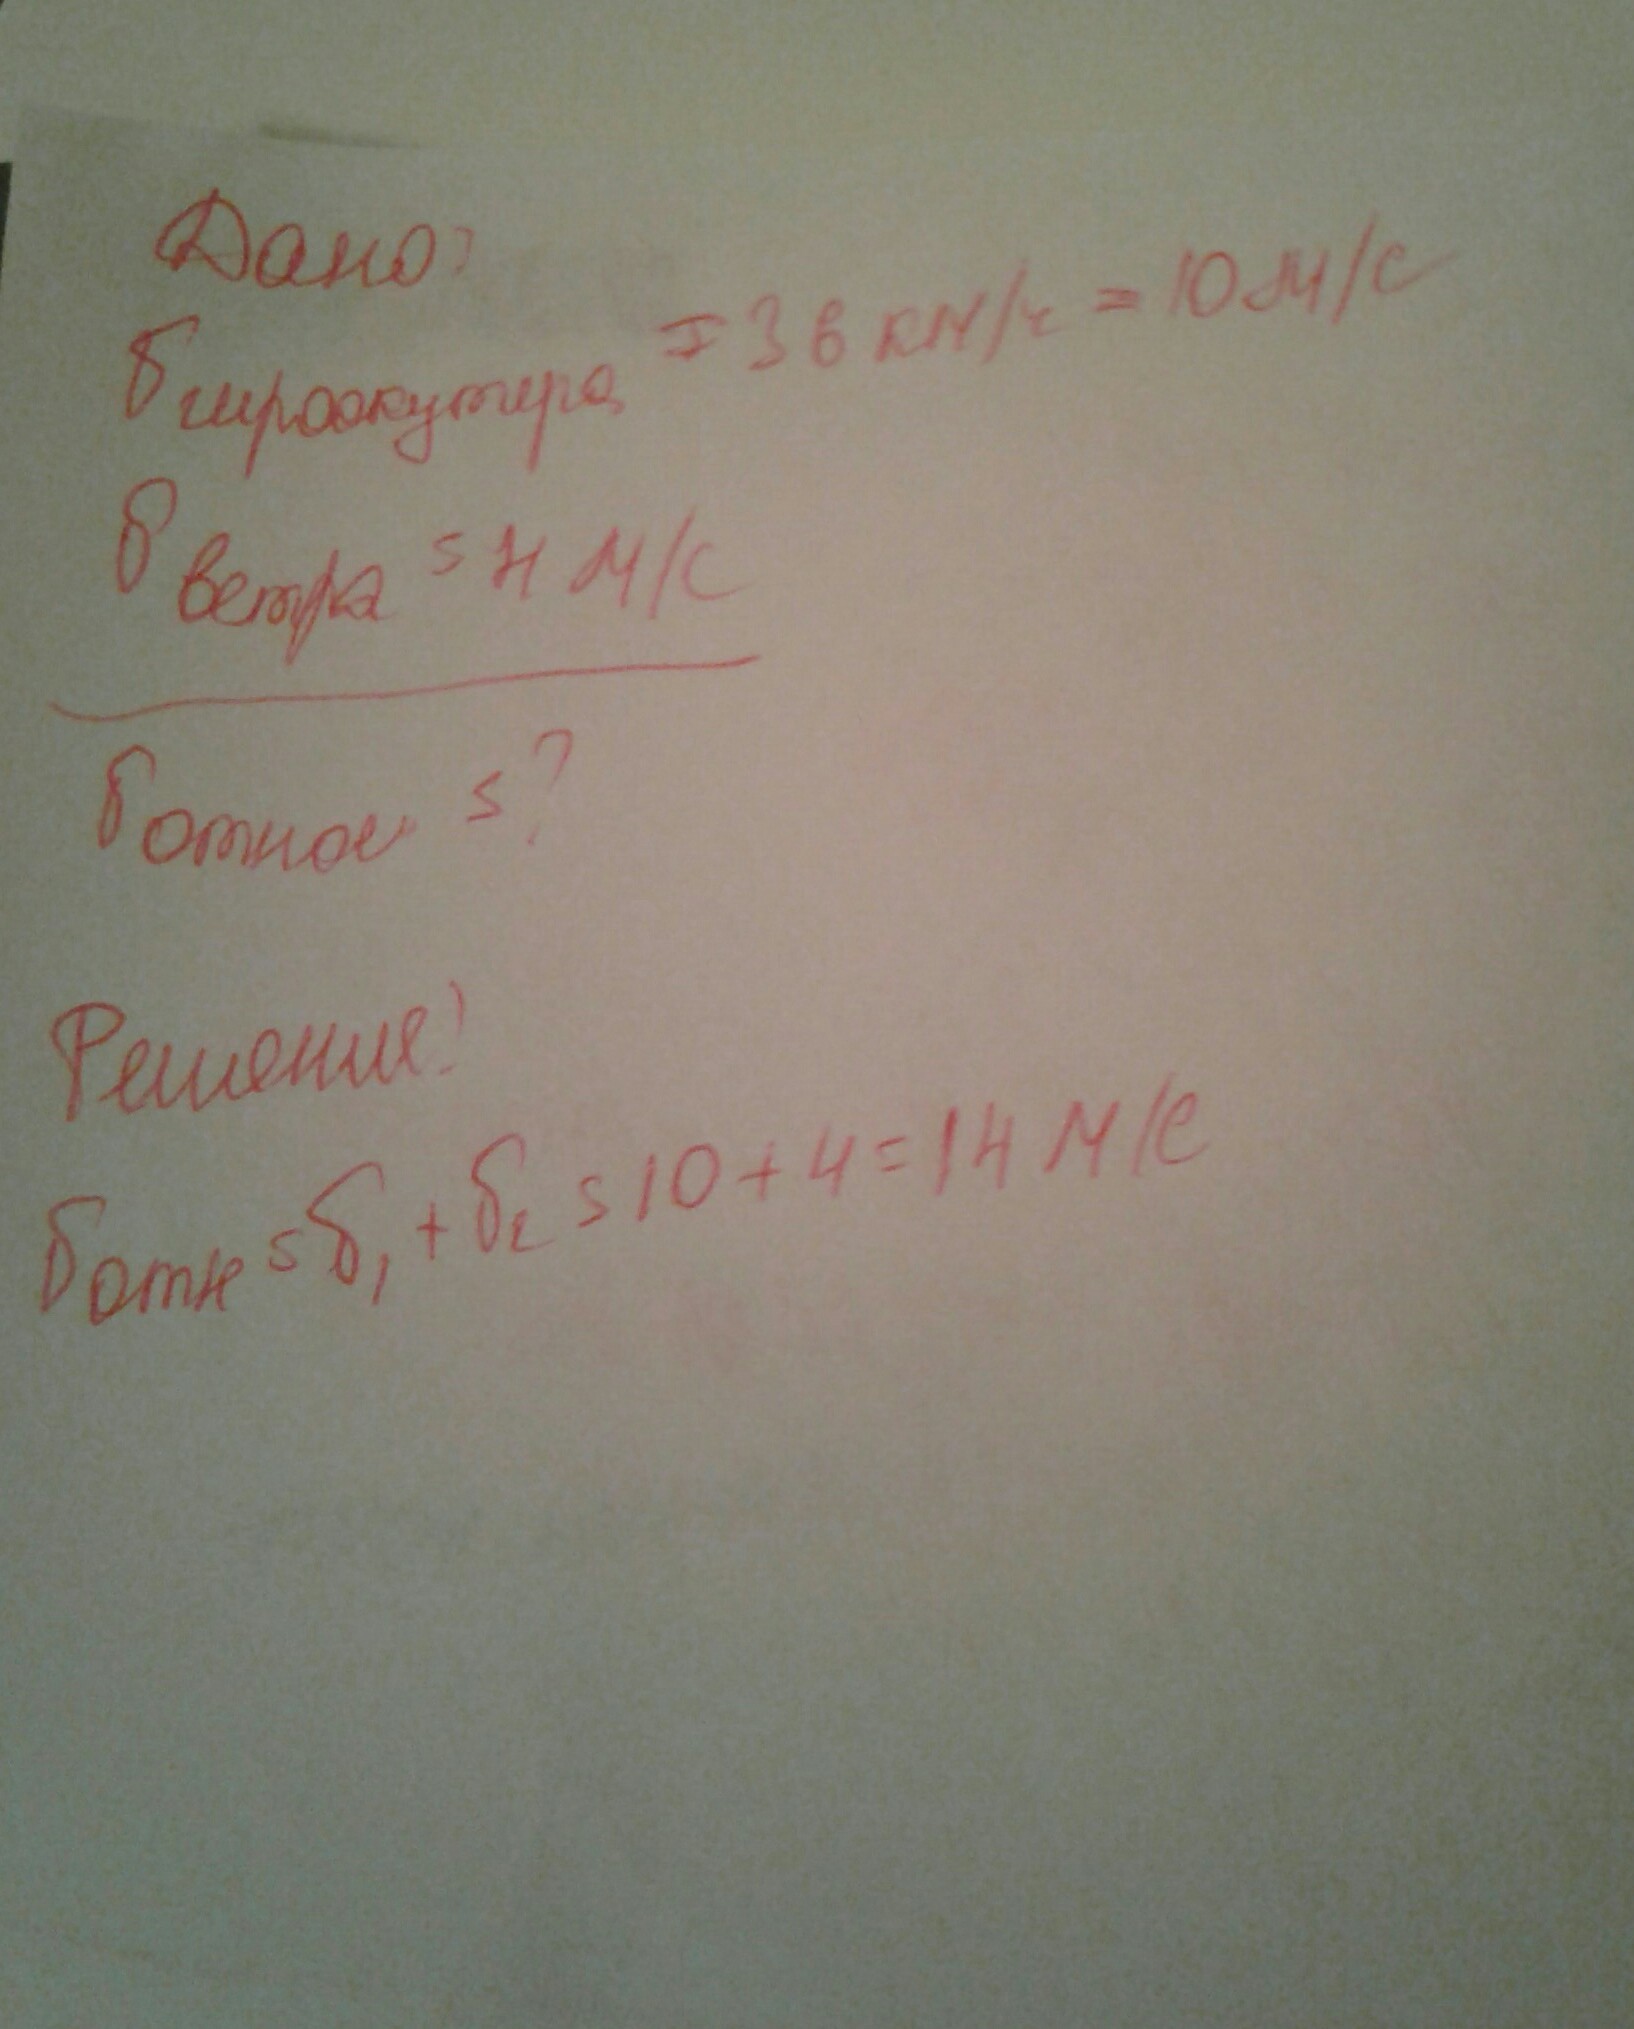 Дано:
υ гироскутера = 36 км/ч = 10 м/с
υ ветра = 4 м/с
υ относ = ?
Решение:
υ отн = υ₁ + υ₂ = 10 + 4 = 14 м/с